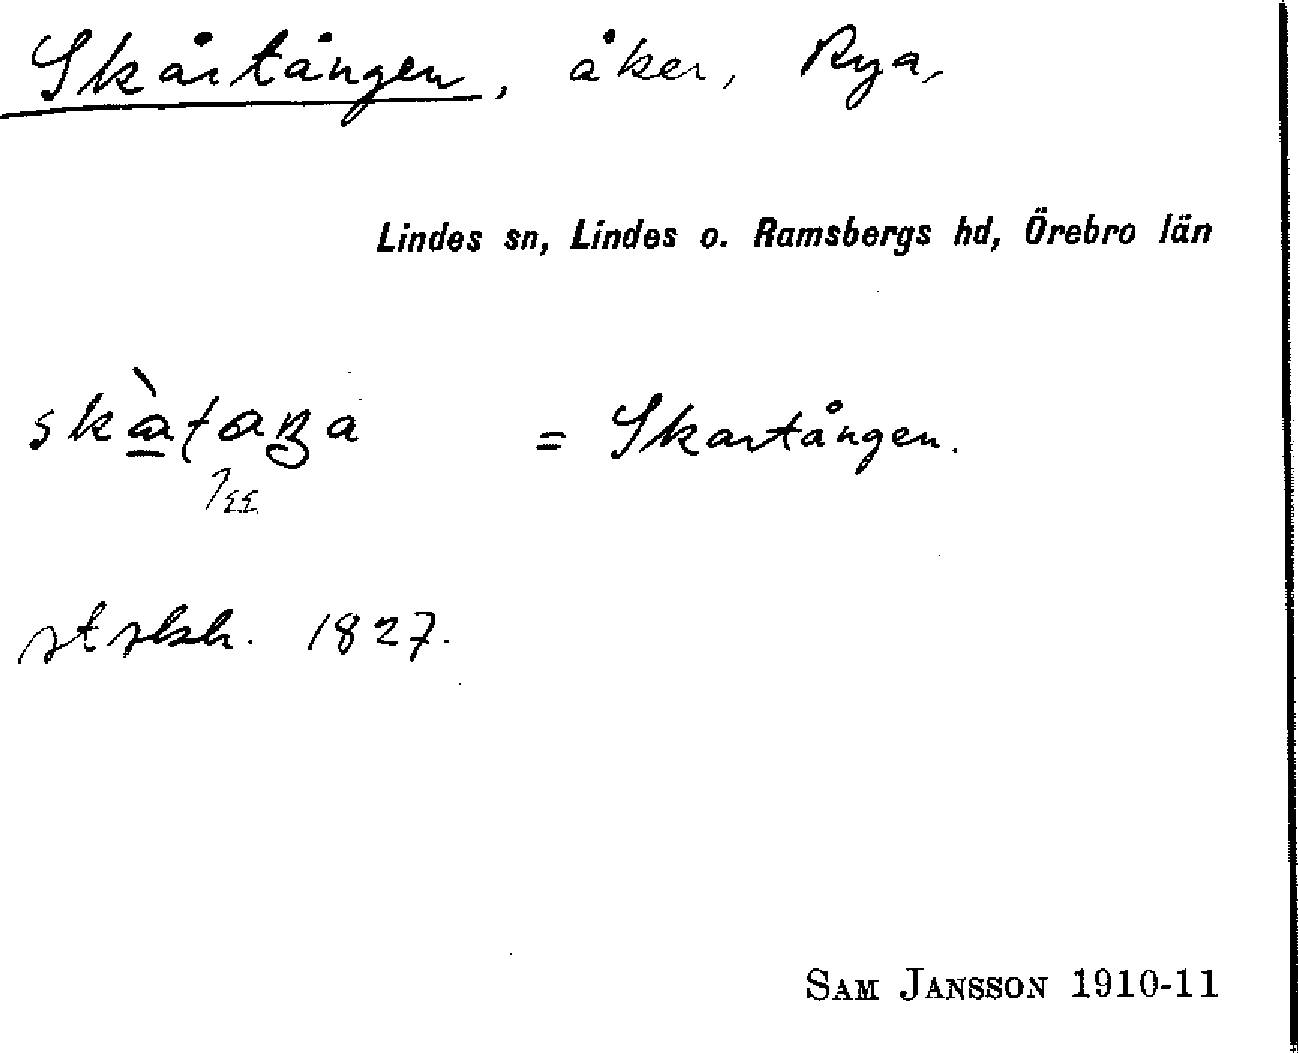 Skårtången, åker, Rya,
Lindes sn, Lindes o. Ramsbergs hd, Örebro län
= Skartången.
1827.
SAM JANSSON 1910-11